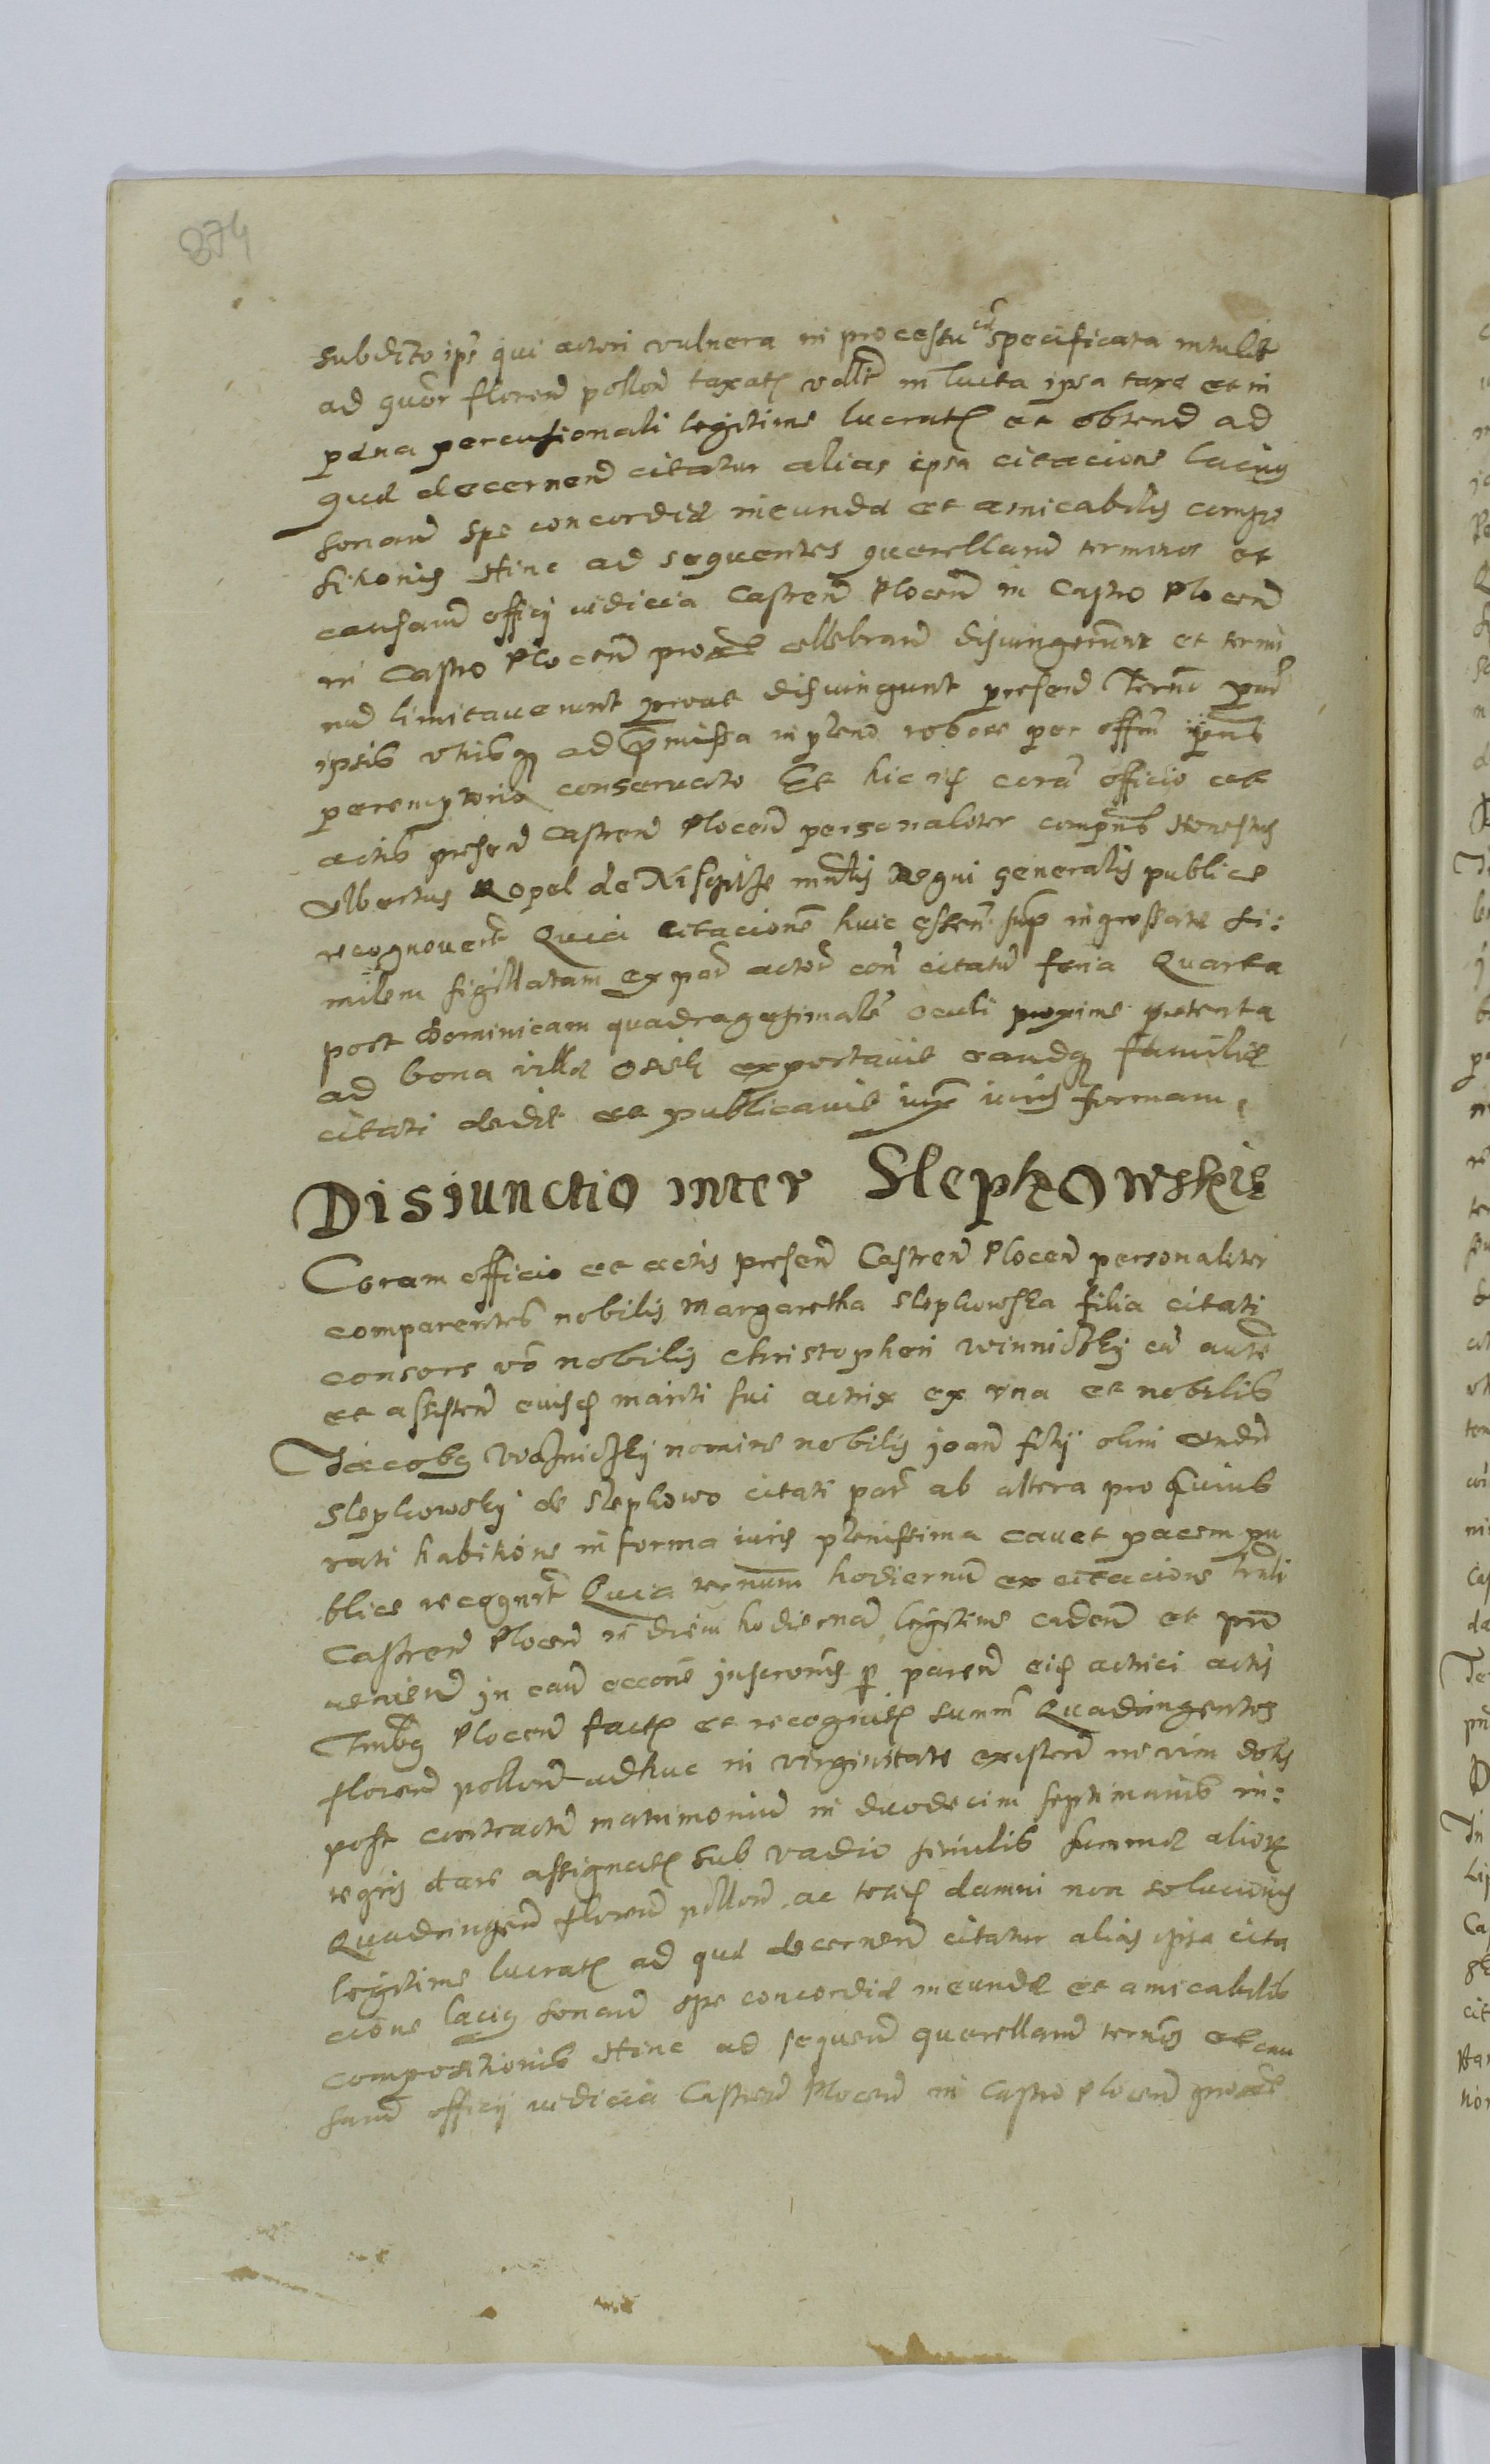 874
subdito ips qui actori vulnera in processu eū specificata intulit
ad quor floren pollon taxat in lucta ipsa taxa et in
pena percusionali legitime lucrat et obtend ad
quæ decernen citatur alias ipsa citacione lacius
sonan spe concordiæ ineundæ et amicabilis compo
sitionis Hinc ad sequentes querellarum terminos et
causarum officij iudicia Castren Plocen in Castro Plocen
in Castro Plocen celebran disiungerunt et termi
num limitaverunt prout disiungunt presend Termo par
ipsis utrisq ad præmissa in pleno robore per offm
peremptorio conservato Et hic coram officio et
actis presen Castren Plocen personaliter comparens Honestus
Albertus Kopel de mntis Regni generalis publice
recognovit Quia citacionem huic ingrossate si:
milem sigillatam ex par actor con citatum feria Quarta
post Dominicam quadragesimale Oculi proxime preterita
ad bona villæ exportavit eandq familiæ
citati dedit et publicavit iux iuris formam.
Disiunctio inter Slepkowskie
Coram officio et actis presen Castren Plocen personaliter
comparentes nobilis Margaretha Slepkowska filia citati
consors vo nobilis Christopheri Winniczky cu aute
et assisten eiusd mariti sui actrix ex una et nobilis
Jacobg Wozniczky nomine nobilis Joan olim Andr
Slepkowsky de Slepkowo citati par ab altera pro
rati habitione in forma iuris plenissima cavet pacem pu
blice recognrt Quia ternum hodiernum ex citacione
Castren Plocen in diem hodiernam legitime caden et pro
venien in cau inscronis p paren eid actrici actis
Plocen fact et recognit summ Quadringentos
floren pollon adhuc in virginitate existen in vim dotis
post contractum matrimonium in duodecim septimanis in:
tegris dare assignat sub vadio similis summæ alior
Quadringen floren pollon ac totid damni non solucionis
legitime lucrat ad quæ decernen citatur alias ipsa cita
cione lacig sonan spe concordiæ ineundæ et amicabilis
compositionis Hinc ad sequen querellarum ternos et cau
sarum officij iudicia Castren Plocen in Castro Plocen